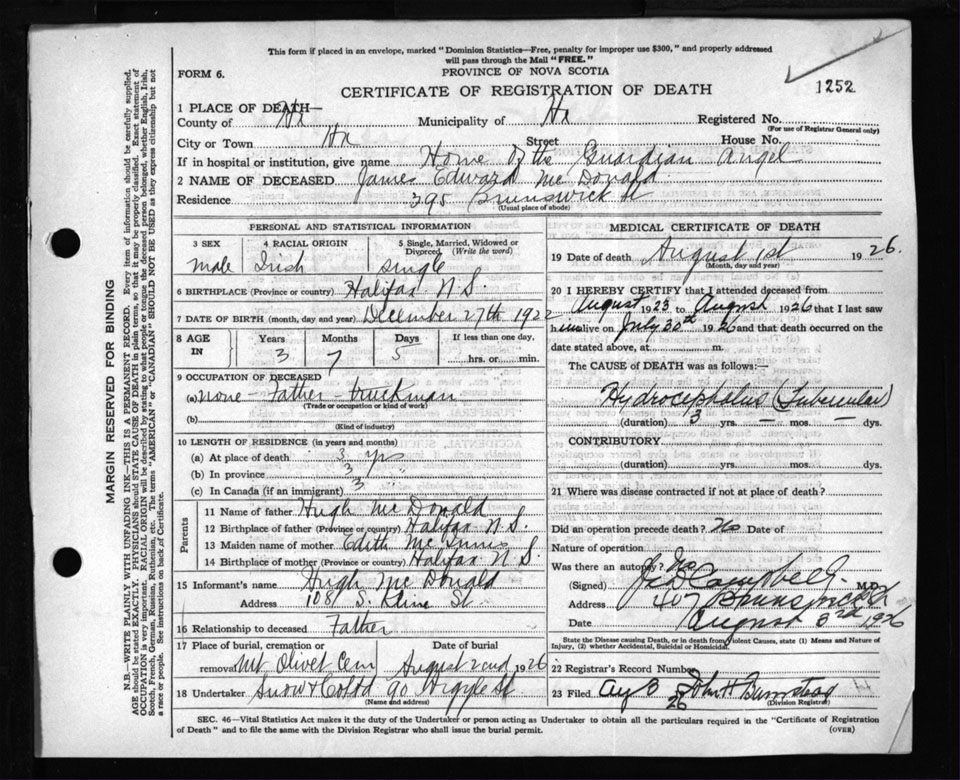 This form if placed in an envelope, marked "Dominion Statistics—Free, penalty for improper use $300," and properly addressed
will pass through the Mail "FREE."
FORM 6.
PROVINCE OF NOVA SCOTIA
CERTIFICATE OF REGISTRATION OF DEATH
1252
1 PLACE OF DEATH—
County of Hx Municipality of Hx Registered No.
(For use of Registrar General only)
City or Town Hx Street House No.
If in hospital or institution, give name Home of the Guardian Angel
2 NAME OF DECEASED James Edward McDonald
Residence 395 Brunswick St
(Usual place of abode)
PERSONAL AND STATISTICAL INFORMATION
3 SEX 4 RACIAL ORIGIN 5 Single, Married, Widowed or Divorced (Write the word)
Male Irish Single
6 BIRTHPLACE (Province or country) Halifax N S.
7 DATE OF BIRTH (month, day and year) December 27th 1922
8 AGE IN Years Months Days If less than one day,
3 7 5 hrs. or min.
9 OCCUPATION OF DECEASED
(a) None - Father - truckman
(Trade or occupation or kind of work)
(b)
(Kind of industry)
10 LENGTH OF RESIDENCE (in years and months)
(a) At place of death 3 yrs
(b) In province 3 "
(c) In Canada (if an immigrant) 3
Parents
11 Name of father Hugh McDonald
12 Birthplace of father (Province or country) Halifax N S.
13 Maiden name of mother Edith McInnis
14 Birthplace of mother (Province or country) Halifax N S.
15 Informant's name Hugh McDonald
Address 108 S. Kline St
16 Relationship to deceased Father
17 Place of burial, cremation or removal Mt Olivet Cem Date of burial August 2nd 1926
18 Undertaker Snow & Co Ltd 90 Argyle St
(Name and address)
MEDICAL CERTIFICATE OF DEATH
19 Date of death August 1st 1926
(Month, day and year)
20 I HEREBY CERTIFY that I attended deceased from
August 1923 to August 1926 that I last saw
him alive on July 30th 1926 and that death occurred on the
date stated above, at m.
The CAUSE of DEATH was as follows:—
Hydrocephalus (Tubercular)
(duration) 3 yrs. — mos. — dys.
CONTRIBUTORY
(duration) yrs. mos. dys.
21 Where was disease contracted if not at place of death?
Did an operation precede death? No Date of
Nature of operation
Was there an autopsy? No
(Signed) Campbell M.D.
Address 407 Brunswick St
Date August 3rd 1926
State the Disease causing Death, or in death from Violent Causes, state (1) Means and Nature of
Injury, (2) whether Accidental, Suicidal or Homicidal.
22 Registrar's Record Number
23 Filed Aug 3 26 John H Barnstead
(Division Registrar)
SEC. 46—Vital Statistics Act makes it the duty of the Undertaker or person acting as Undertaker to obtain all the particulars required in the "Certificate of Registration
of Death" and to file the same with the Division Registrar who shall issue the burial permit.
(OVER)
MARGIN RESERVED FOR BINDING
N.B.—WRITE PLAINLY WITH UNFADING INK—THIS IS A PERMANENT RECORD. Every item of information should be carefully supplied.
AGE should be stated EXACTLY. PHYSICIANS should STATE CAUSE OF DEATH in plain terms, so that it may be properly classified. Exact statement of
OCCUPATION is very important. RACIAL ORIGIN will be described by stating to what people or tongue the deceased person belonged, whether English, Irish,
Scotch, French, German, Russian, Ruthenian, etc. The terms "AMERICAN" or "CANADIAN" SHOULD NOT BE USED as they express citizenship but not
a race or people. See instructions on back of Certificate.